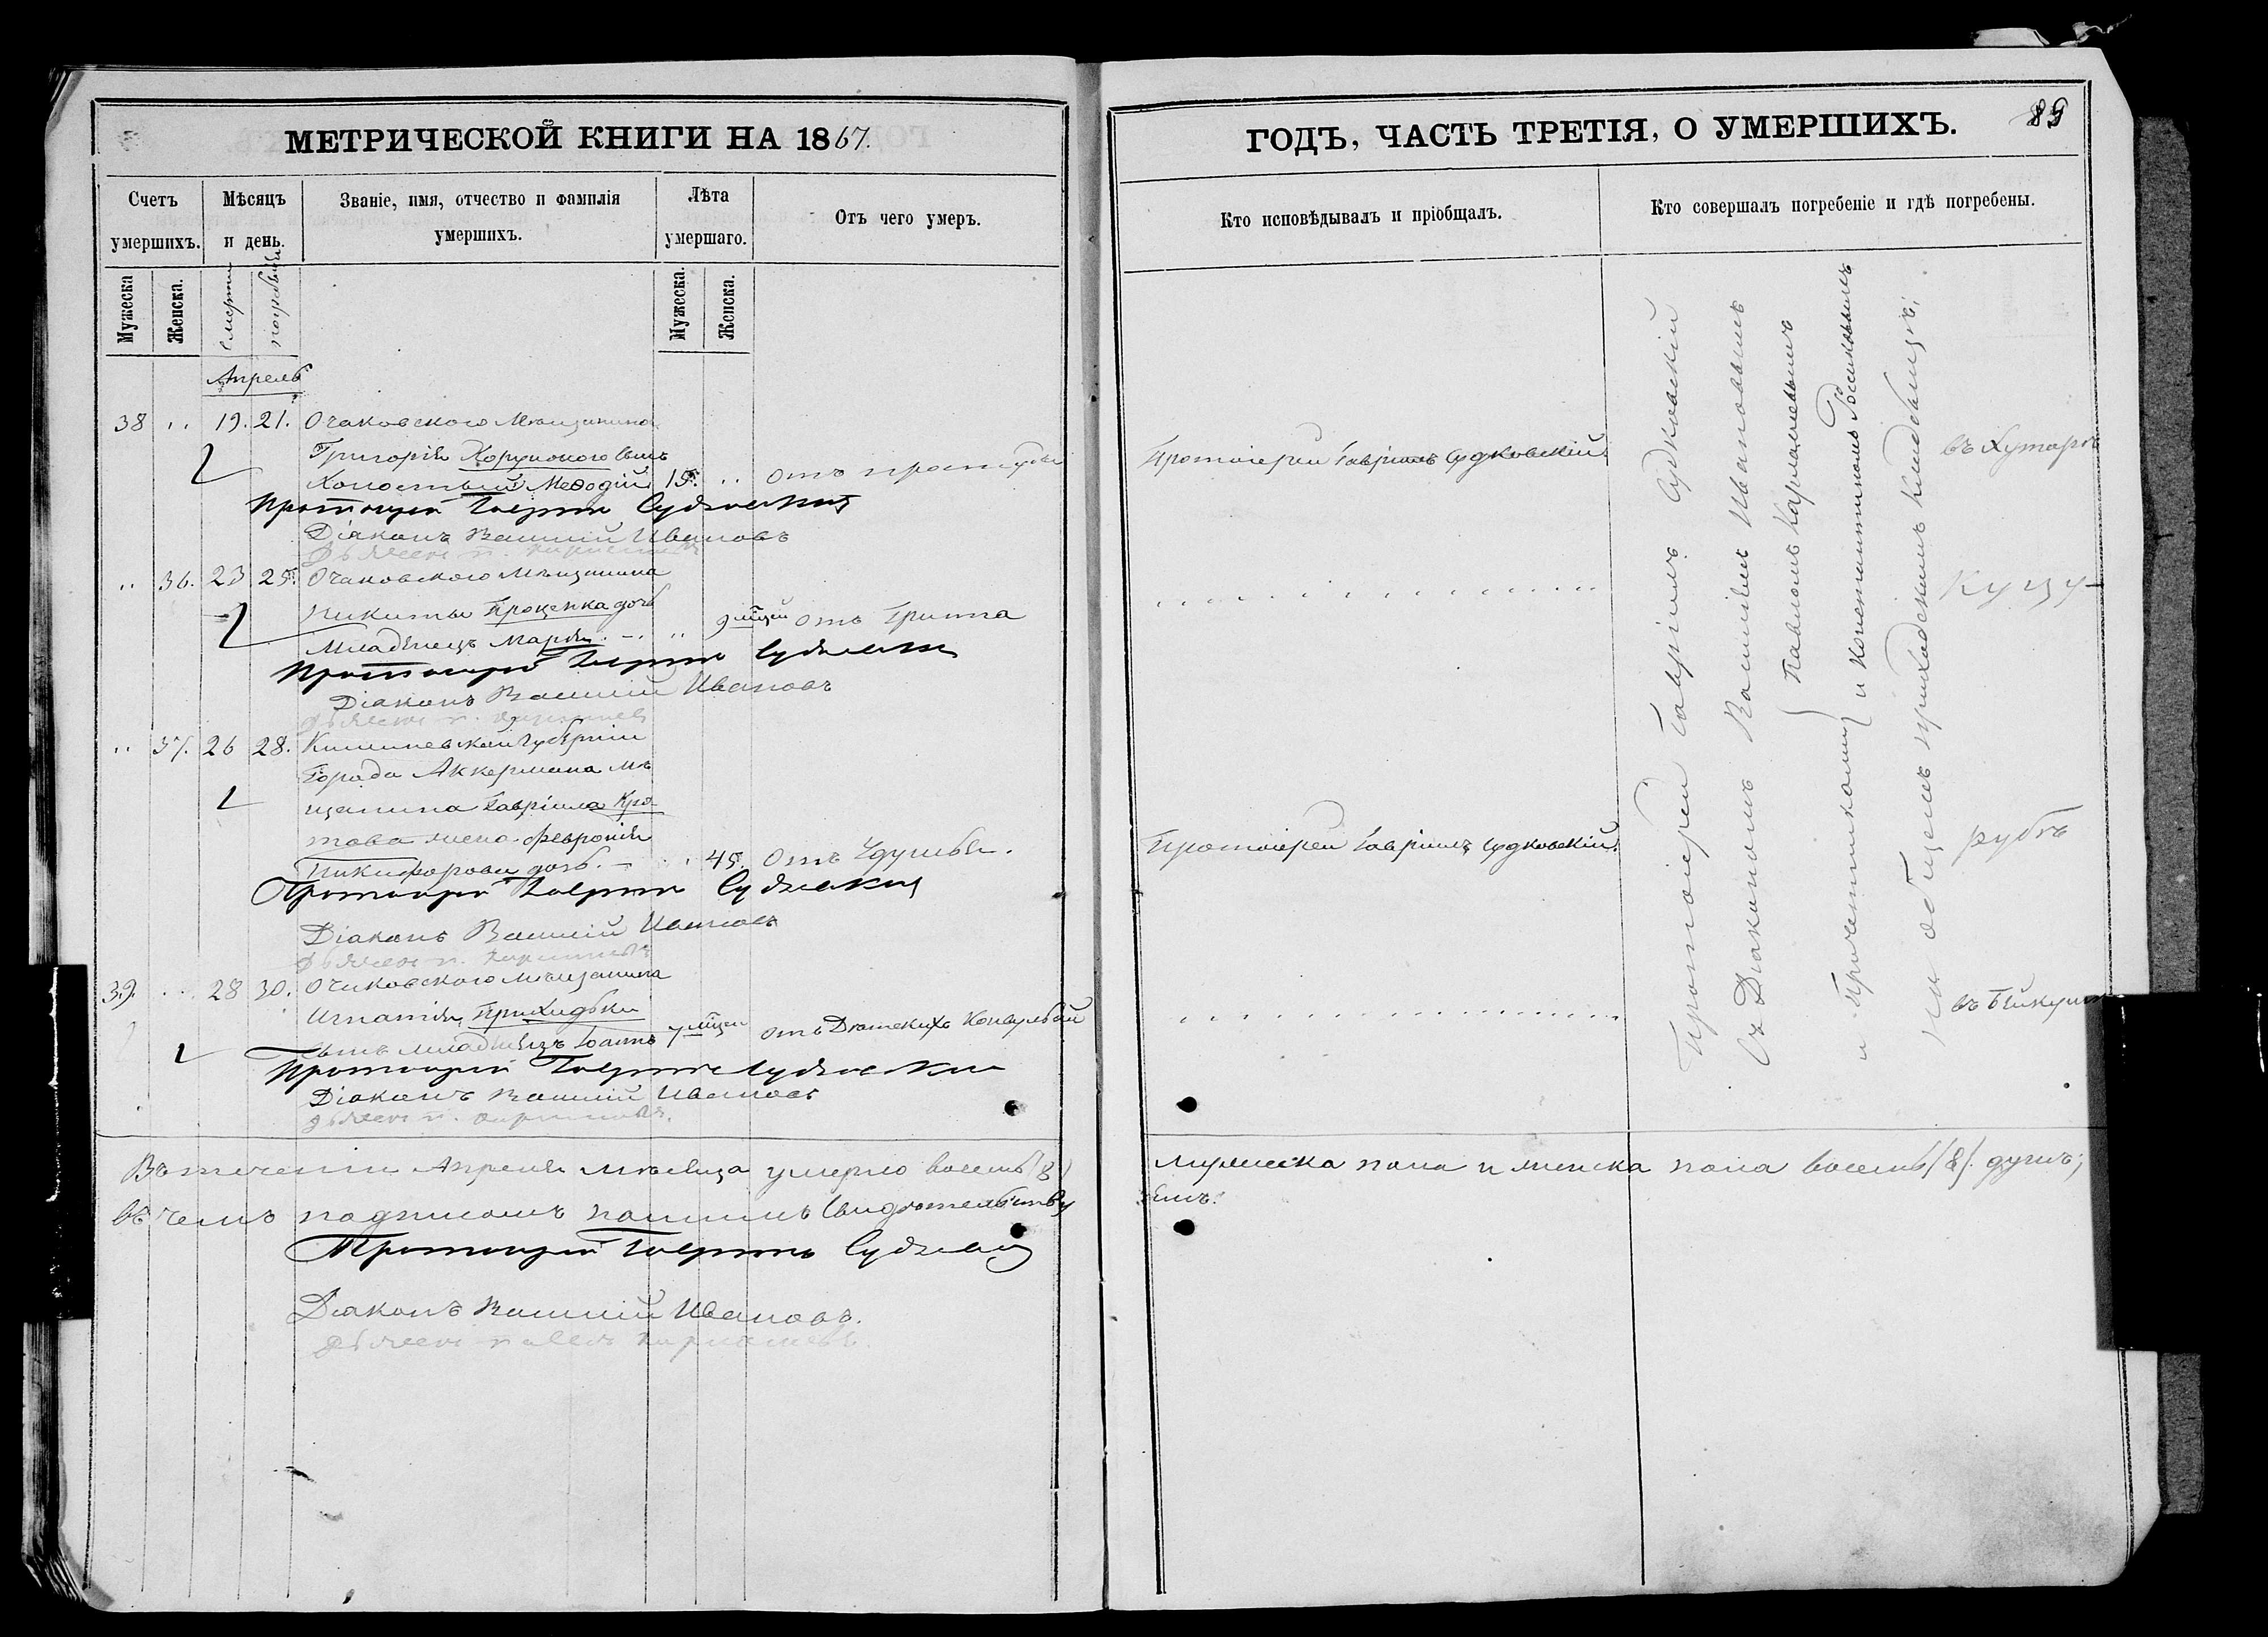 МЕТРИЧЕСКОЙ КНИГИ НА 1867.
Счетъ умершихъ.
Мѣсяцъ и день.
Званіе, имя, отчество и фамилія умершихъ.
Лѣта умершаго.
Отъ чего умеръ.
Мужеска
Женска.
смерти
погребенія
Мужеска.
Женска.
Апрель
38 „ 19. 21. Очаковскаго Мѣщанина
Григорія сынъ
Холостый Меѳодій 15. „ отъ простуды
Протоіерей Гавріилъ Судковскій
Діаконъ Василій Ивановъ
„ 36. 23 25. Очаковскаго Мѣщанина
Никиты Проценка дочь
Младенецъ Марія. – „ 9 отъ Гриппа
Протоіерей Гавріилъ Судковскій
Діаконъ Василій Ивановъ
„ 37. 26 28. Кишиневской Губерніи
Города Аккермана мѣ
щанина Гавріила Кро
това жена Февронія
Никифорова дочь. – „ 45. Отъ Удушья.
Протоіерей Гавріилъ Судковскій
Діаконъ Василій Ивановъ
39. „ 28 30. Очаковскаго мѣщанина
Игнатія Приходьки
сынъ младенецъ Іоаннъ 7 отъ Дѣтскихъ Конвульсій
Протоіерей Гавріилъ Судковскій
Діаконъ Василій Ивановъ
Въ теченіи Апреля мѣсяца умерло восемь (8)
въ чемъ подписомъ нашимъ Свидѣтельству
Протоіерей Гавріилъ Судковскій
Діаконъ Василій Ивановъ.
ГОДЪ, ЧАСТЬ ТРЕТІЯ, О УМЕРШИХЪ.
89
Кто исповѣдывалъ и пріобщалъ.
Кто совершалъ погребеніе и гдѣ погребены.
Протоіерей Гавріилъ Судковскій.
Протоіерей Гавріилъ Судковскій.
Протоіерей Гавріилъ Судковскій
съ Діакономъ Василіемъ Ивановымъ
и Причетниками
Павломъ
и Константиномъ
на общемъ приходскомъ кладбищѣ;
въ Хуторѣ
Куцу-
рубѣ
въ Бейкушѣ
мужеска пола и женска пола восемь (8). душъ;
емъ.